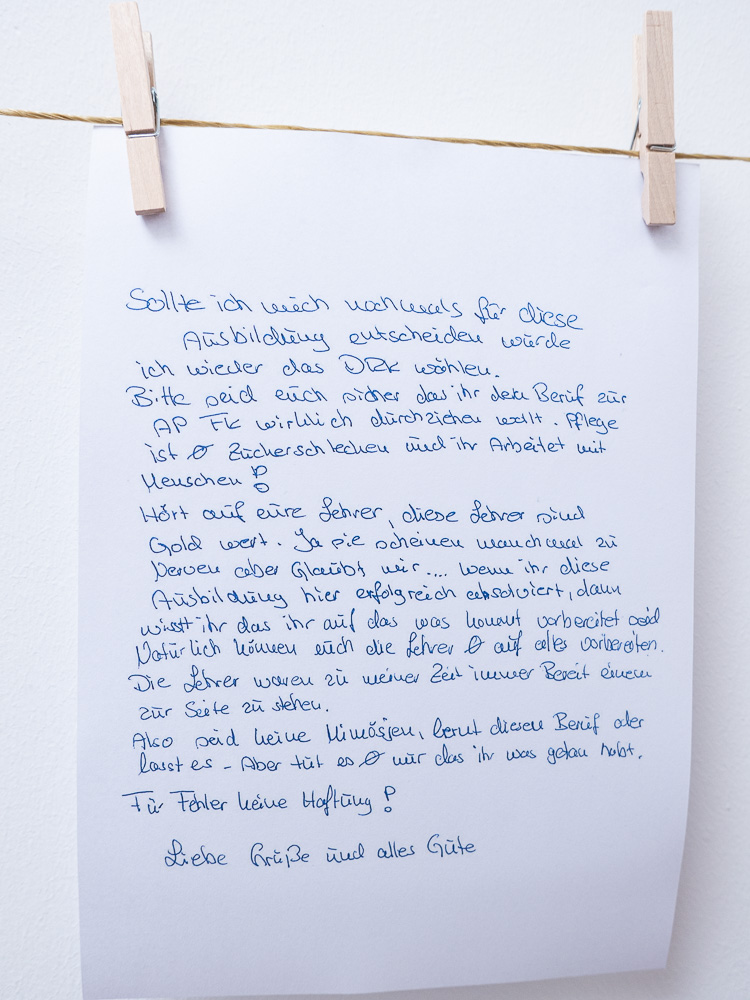 Sollte ich mich nochmals für diese
Ausbildung entscheiden würde
ich wieder das DRK wählen.
Bitte seid euch sicher das ihr den Beruf zur
AP FK wirklich durchziehen wollt. Pflege
ist Ø Zückerschlecken und ihr Arbeitet mit
Menschen!
Hört auf eure Lehrer, diese Lehrer sind
Gold wert. Ja sie scheinen manchmal zu
Nerven aber Glaubt mir.... wenn ihr diese
Ausbildung hier erfolgreich absolviert, dann
wisst ihr das ihr auf das was kommt vorbereitet seid
Natürlich können euch die Lehrer Ø auf alles vorbereiten.
Die Lehrer waren zu meiner Zeit immer Bereit einem
zur Seite zu stehen.
Also seid keine Mimösjen, lernt diesen Beruf oder
lasst es - Aber tut es Ø nur das ihr was getan habt.
Für Fehler keine Haftung!
Liebe Grüße und alles Gute